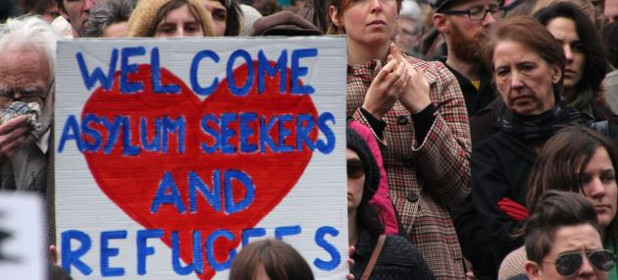 WELCOME
ASYLUM SEEKERS
AND
REFUGEES